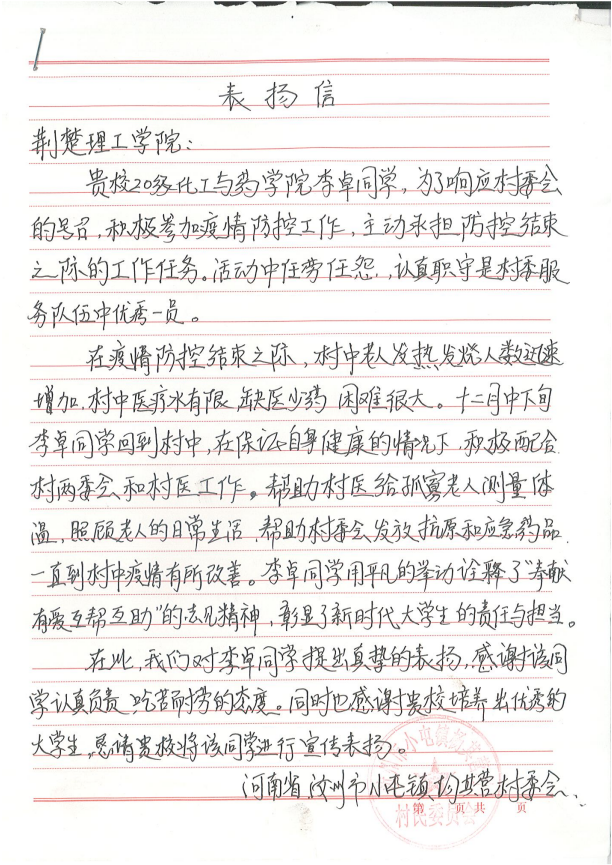 表扬信
荆楚理工学院：
贵校20级化工与药学院李卓同学，为了响应村委会
的号召，积极参加疫情防控工作，主动承担防控结束
之际的工作任务。活动中任劳任怨，认真职守是村委服
务队伍中优秀一员。
在疫情防控结束之际，村中老人发热发烧人数迅速
增加，村中医疗水有限 缺医少药 困难很大。十二月中下旬
李卓同学回到村中，在保证自身健康的情况下，积极配合
村两委会和村医工作。帮助村医给孤寡老人测量体
温，照顾老人的日常生活，帮助村委会发放抗原和应急药品，
一直到村中疫情有所改善。李卓同学用平凡的举动诠释了“奉献
有爱互帮互助”的志愿精神，彰显了新时代大学生的责任与担当。
在此，我们对李卓同学提出真挚的表扬，感谢该同
学认真负责 吃苦耐劳的态度。同时也感谢贵校培养出优秀的
大学生，恳请贵校将该同学进行宣传表扬。
河南省汝州市小屯镇 营村委会
第 页共 页
小屯镇
村民委员会